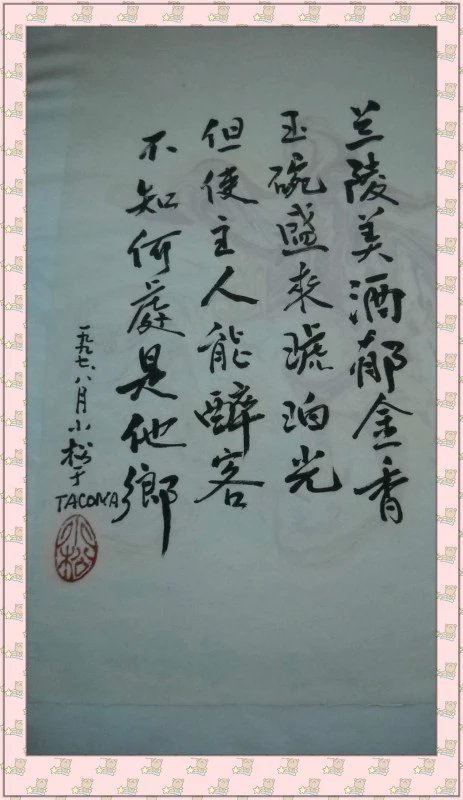 兰陵美酒郁金香
玉碗盛来琥珀光
但使主人能醉客
不知何處是他鄉
一九九七、八月小松于
TACOMA
小松